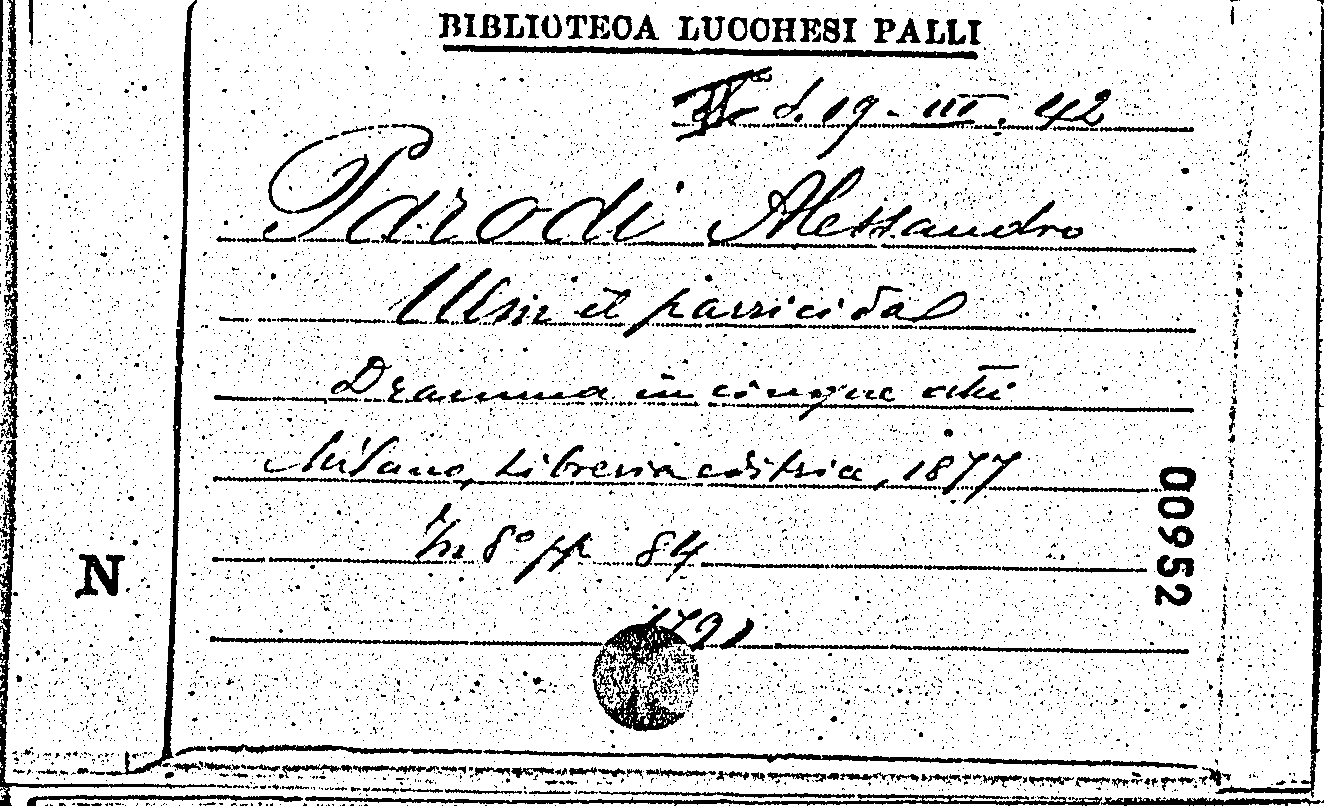 BIBLIOTECA LUCCHESI PALLI
d. 19-III. 42
Parodi Alessandro
Ulm il parricida
Dramma in cinque atti
Milano, Libreria editrice, 1877
In 8° pp 84
00952
N